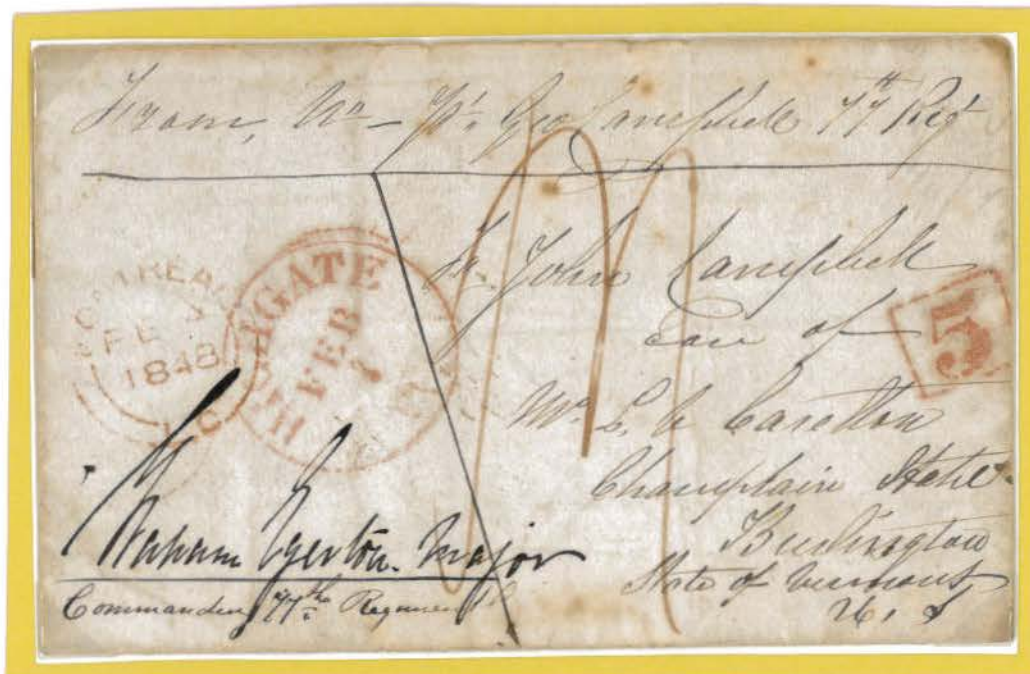 From, No - Pt. Geo Campbell 77th Regt
MONTREAL
FE
1848
L.C
HIGHGATE
FEB
Jn. John Campbell
Care of
Mr. L. C Carelton
Champlain Hotel
Burlington
State of Vermont
U. S
5
Graham Egerton. Major
Commanding 77th Regiment